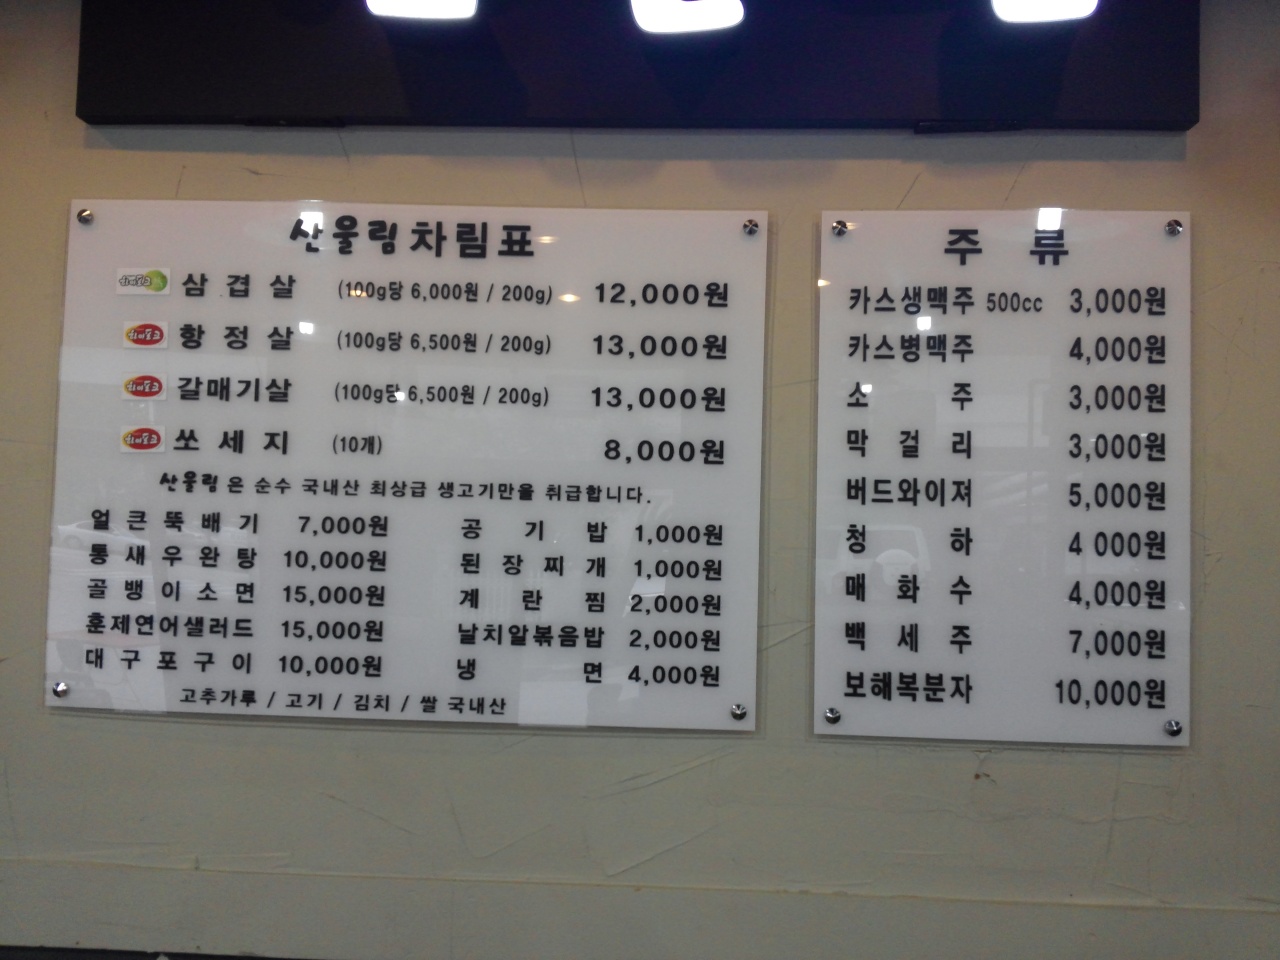 산울림차림표
삼겹살 (100g당 6,000원 / 200g) 12,000원
하이포크 항정살 (100g당 6,500원 / 200g) 13,000원
하이포크 갈매기살 (100g당 6,500원 / 200g) 13,000원
하이포크 쏘세지 (10개) 8,000원
산울림은 순수 국내산 최상급 생고기만을 취급합니다.
얼큰뚝배기 7,000원 공기밥 1,000원
통새우완탕 10,000원 된장찌개 1,000원
골뱅이소면 15,000원 계란찜 2,000원
훈제연어샐러드 15,000원 날치알볶음밥 2,000원
대구포구이 10,000원 냉면 4,000원
고추가루 / 고기 / 김치 / 쌀 국내산
주류
카스생맥주 500cc 3,000원
카스병맥주 4,000원
소주 3,000원
막걸리 3,000원
버드와이져 5,000원
청하 4 000원
매화수 4,000원
백세주 7,000원
보해복분자 10,000원